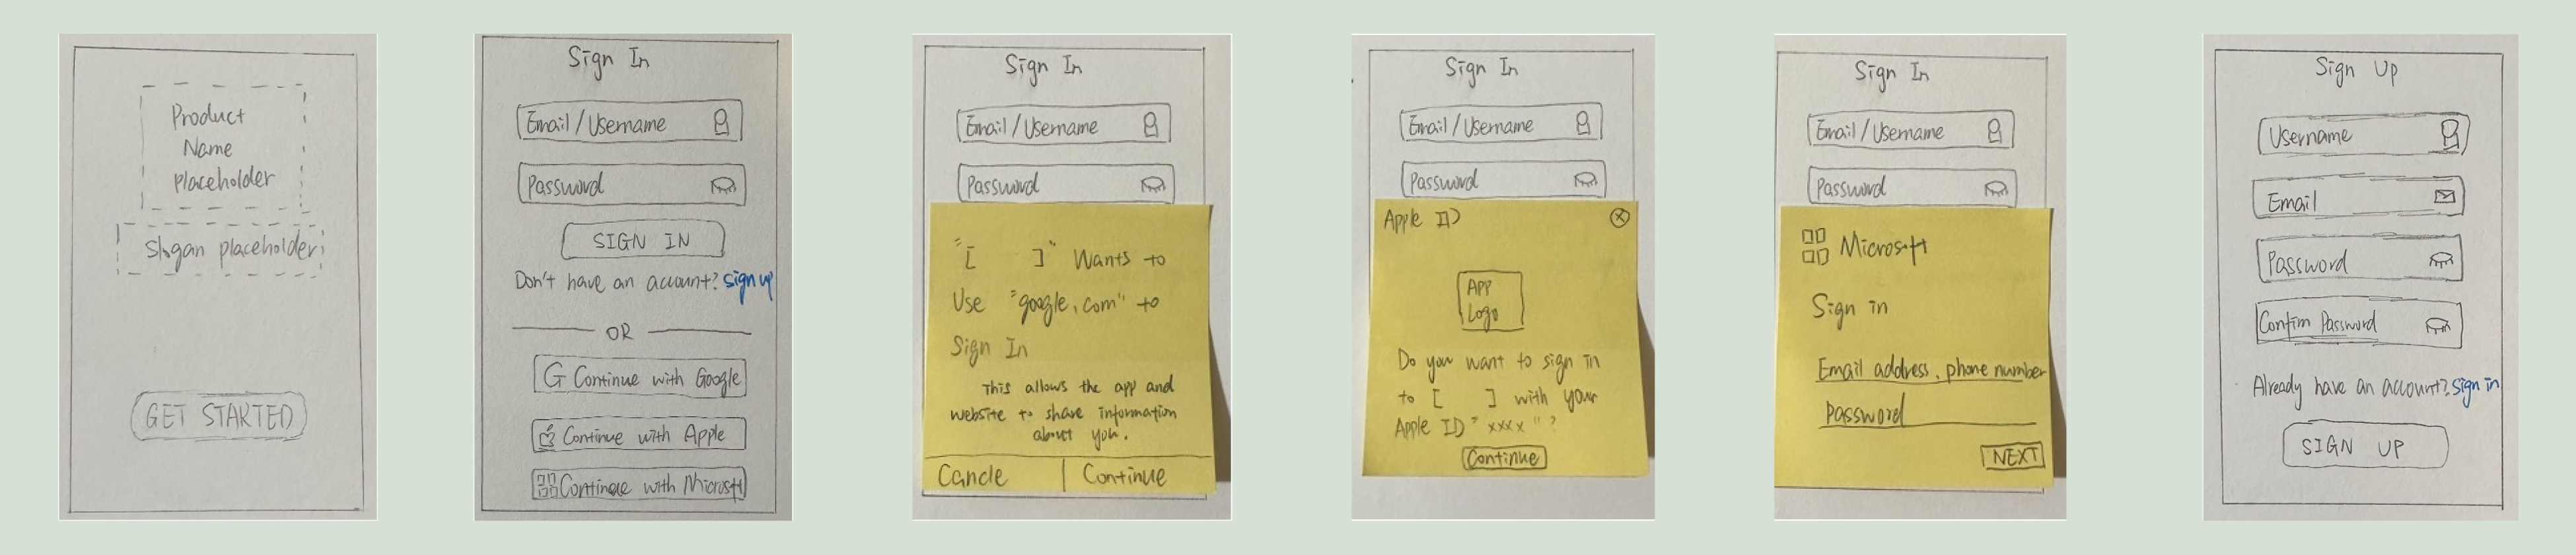 Product
Name
Placeholder
Slogan placeholder
GET STARTED
Sign In
Email/Username
Password
SIGN IN
Don't have an account? sign up
OR
G Continue with Google
Continue with Apple
Continue with Microsoft
Sign In
Email/Username
Password
"[ ]" Wants to
Use "google.com" to
Sign In
This allows the app and
website to share information
about you.
Cancle Continue
Sign In
Email/Username
Password
Apple ID
App
Logo
Do you want to sign in
to [ ] with your
Apple ID "xxxx"?
Continue
Sign In
Email/Username
Password
Microsoft
Sign in
Email address, phone number
Password
NEXT
Sign Up
Username
Email
Password
Confim Password
Already have an account? sign in
SIGN UP